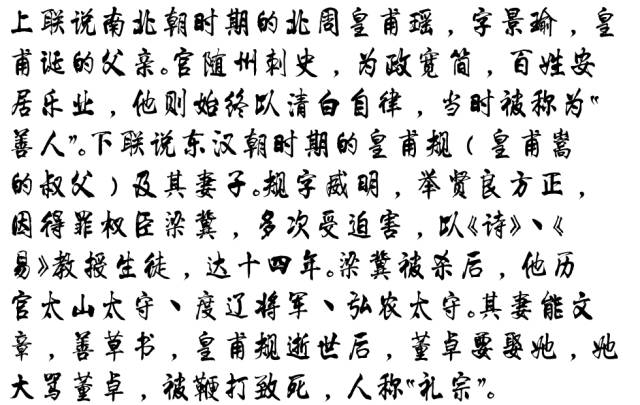 上联说南北朝时期的北周皇甫瑶，字景瑜，皇
甫诞的父亲。官随州刺史，为政宽简，百姓安
居乐业，他则始终以清白自律，当时被称为“
善人”。下联说东汉朝时期的皇甫规（皇甫嵩
的叔父）及其妻子。规字威明，举贤良方正，
因得罪权臣梁冀，多次受迫害，以《诗》、《
易》教授生徒，达十四年。梁冀被杀后，他历
官太山太守、度辽将军、弘农太守。其妻能文
章，善草书，皇甫规逝世后，董卓要娶她，她
大骂董卓，被鞭打致死，人称“礼宗”。